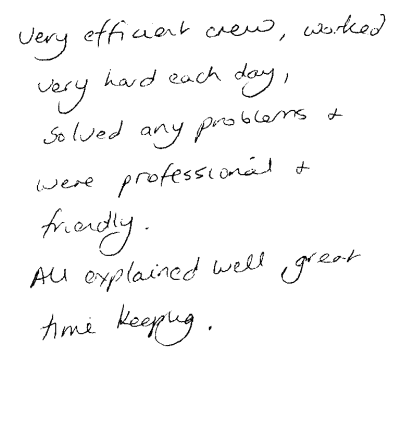 Very efficient crew, worked
very hard each day,
solved any problems +
were professional +
friendly.
All explained well, great
time keeping.